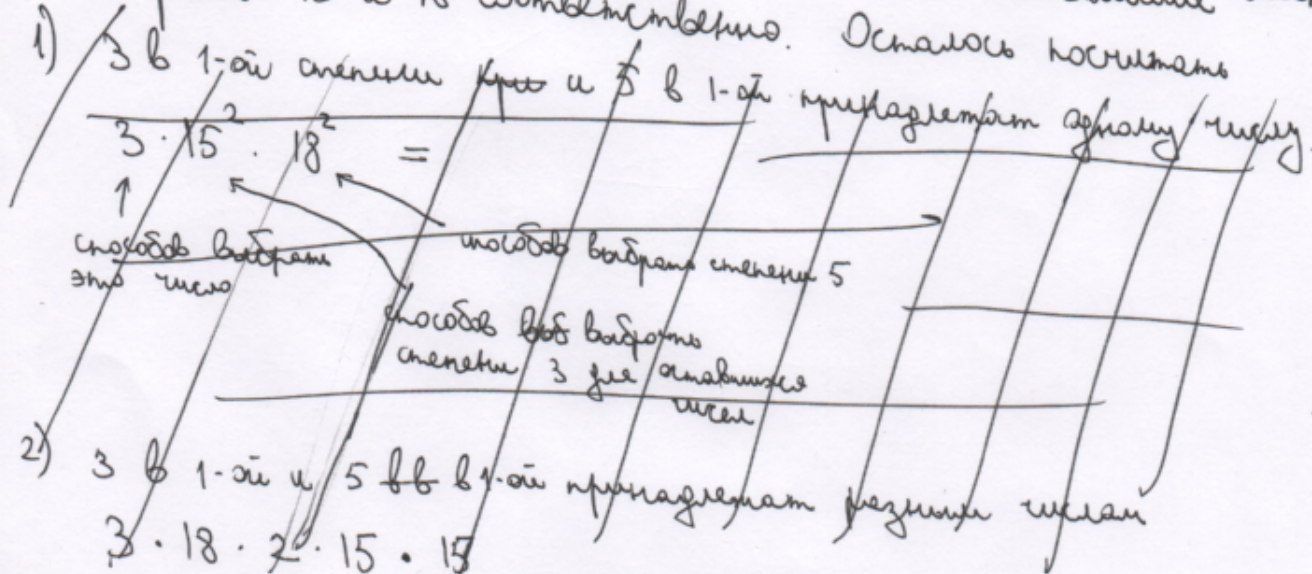 15 и 18 соответственно. Осталось посчитать
1) 3 в 1-ой степени при и 5 в 1-ой принадлежат одному числу.
3 · 15² · 18² =
способов выбрать это число
способов выбрать степени 5
способов выб выбрать
степени 3 для оставшихся
чисел
2) 3 в 1-ой и 5 вв в 1-ой принадлежат разным числам
3 · 18 · 2 · 15 · 15